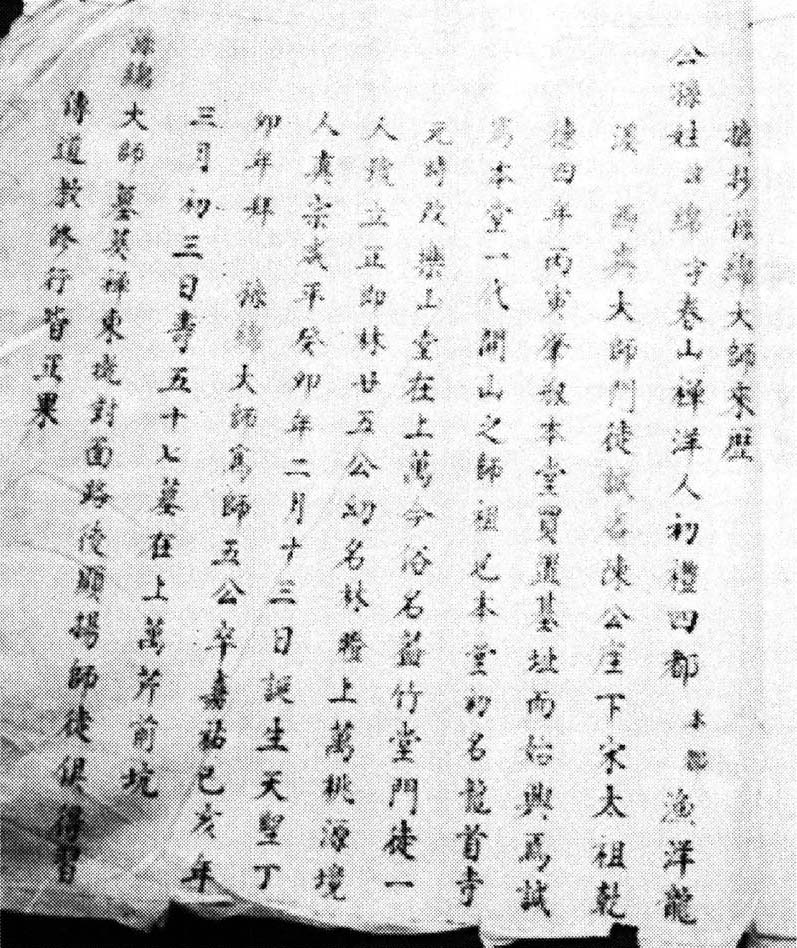 摘抄孫綿大師來歷
公孫姓諱綿字春山禪洋人初禮四都本都漁洋龍
溪 西爽大師門徒誠志陳公座下宋太祖乾
德四年丙寅肇啟本堂買置基址而始興焉誠
為本堂一代開山之師祖也本堂初名龍首寺
元時改樂山堂在上萬今俗名蓋竹堂門徒一
人號立正即林廿五公幼名林瞪上萬桃源境
人真宗咸平癸卯年二月十三日誕生天聖丁
卯年拜 孫綿大師為師五公卒嘉祐己亥年
三月初三日壽五十七墓在上萬芹前坑
孫綿大師墓葬禪東墘對面路後顯揚師徒俱得習
傳道教修行皆正果